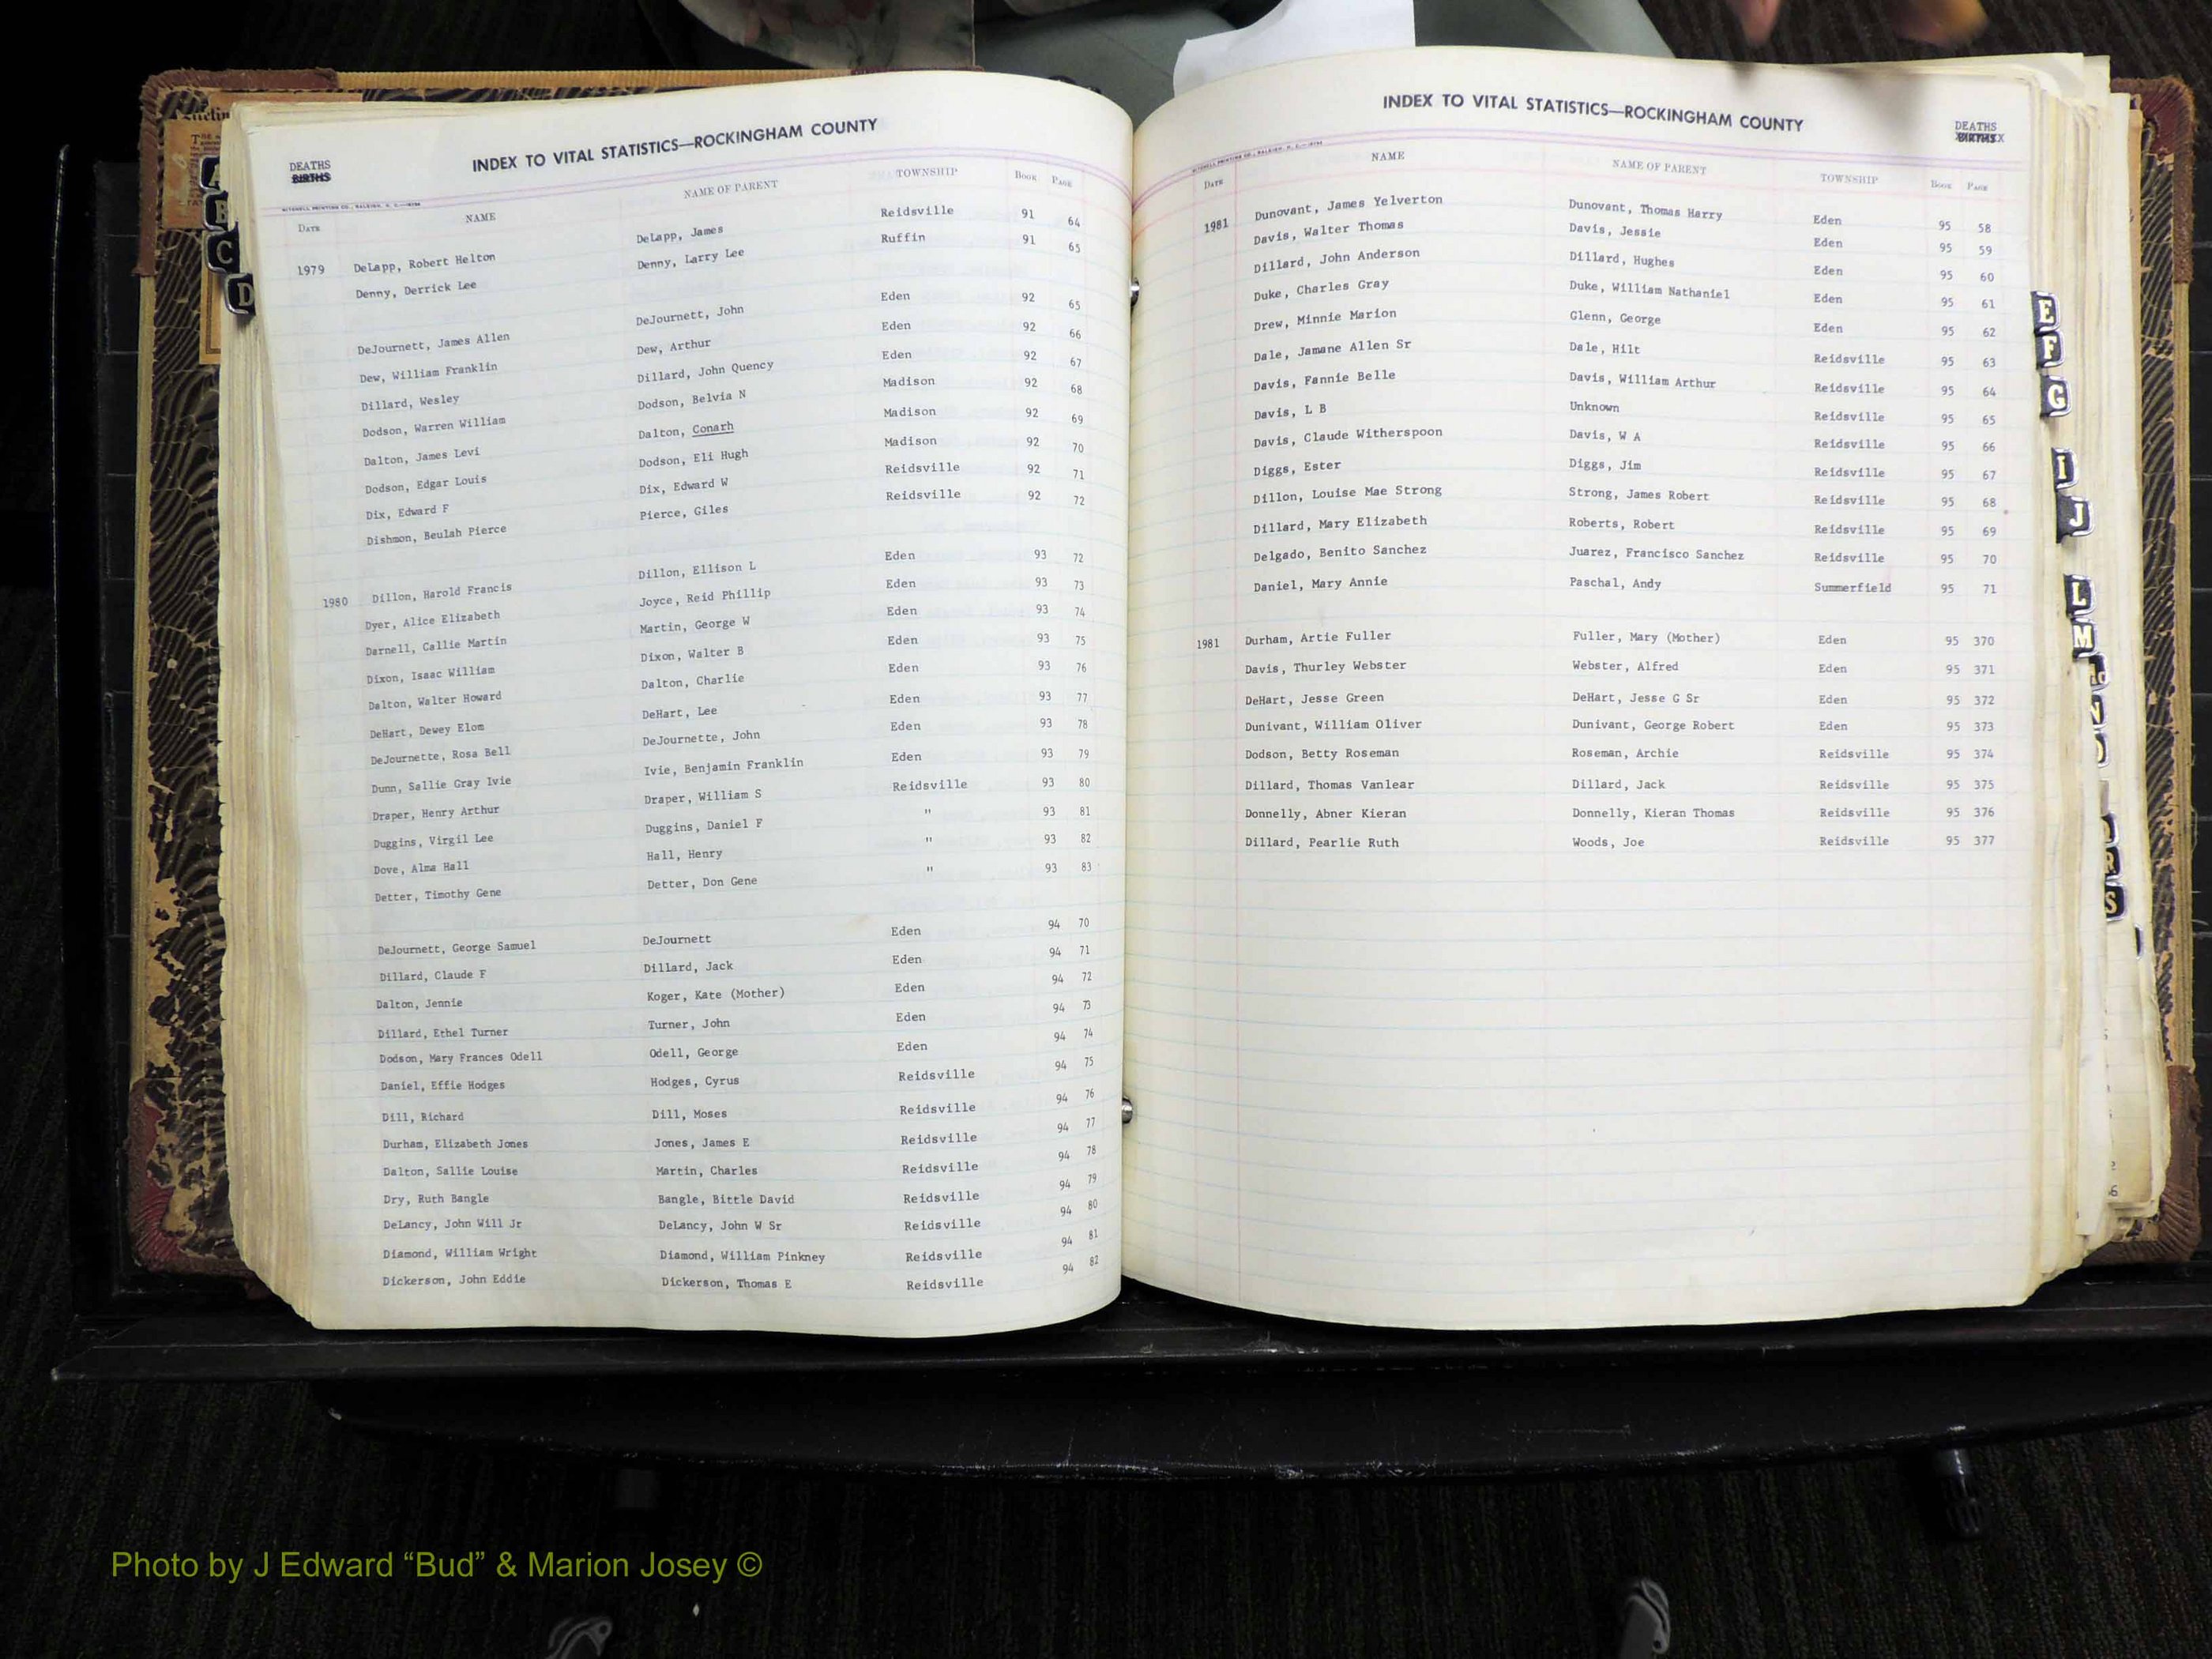 INDEX TO VITAL STATISTICS—ROCKINGHAM COUNTY
DEATHS
BIRTHS
MITCHELL PRINTING CO., RALEIGH, N. C.
DATE NAME NAME OF PARENT TOWNSHIP BOOK PAGE
1979 DeLapp, Robert Helton DeLapp, James Reidsville 91 64
Denny, Derrick Lee Denny, Larry Lee Ruffin 91 65
DeJournett, James Allen DeJournett, John Eden 92 65
Dew, William Franklin Dew, Arthur Eden 92 66
Dillard, Wesley Dillard, John Quency Eden 92 67
Dodson, Warren William Dodson, Belvia N Madison 92 68
Dalton, James Levi Dalton, Conarh Madison 92 69
Dodson, Edgar Louis Dodson, Eli Hugh Madison 92 70
Dix, Edward F Dix, Edward W Reidsville 92 71
Dishmon, Beulah Pierce Pierce, Giles Reidsville 92 72
1980 Dillon, Harold Francis Dillon, Ellison L Eden 93 72
Dyer, Alice Elizabeth Joyce, Reid Phillip Eden 93 73
Darnell, Callie Martin Martin, George W Eden 93 74
Dixon, Isaac William Dixon, Walter B Eden 93 75
Dalton, Walter Howard Dalton, Charlie Eden 93 76
DeHart, Dewey Elom DeHart, Lee Eden 93 77
DeJournette, Rosa Bell DeJournette, John Eden 93 78
Dunn, Sallie Gray Ivie Ivie, Benjamin Franklin Eden 93 79
Draper, Henry Arthur Draper, William S Reidsville 93 80
Duggins, Virgil Lee Duggins, Daniel F " 93 81
Dove, Alma Hall Hall, Henry " 93 82
Detter, Timothy Gene Detter, Don Gene " 93 83
DeJournett, George Samuel DeJournett Eden 94 70
Dillard, Claude F Dillard, Jack Eden 94 71
Dalton, Jennie Koger, Kate (Mother) Eden 94 72
Dillard, Ethel Turner Turner, John Eden 94 73
Dodson, Mary Frances Odell Odell, George Eden 94 74
Daniel, Effie Hodges Hodges, Cyrus Reidsville 94 75
Dill, Richard Dill, Moses Reidsville 94 76
Durham, Elizabeth Jones Jones, James E Reidsville 94 77
Dalton, Sallie Louise Martin, Charles Reidsville 94 78
Dry, Ruth Bangle Bangle, Bittle David Reidsville 94 79
DeLancy, John Will Jr DeLancy, John W Sr Reidsville 94 80
Diamond, William Wright Diamond, William Pinkney Reidsville 94 81
Dickerson, John Eddie Dickerson, Thomas E Reidsville 94 82
INDEX TO VITAL STATISTICS—ROCKINGHAM COUNTY
DEATHS
BIRTHS
MITCHELL PRINTING CO., RALEIGH, N. C.
DATE NAME NAME OF PARENT TOWNSHIP BOOK PAGE
1981 Dunovant, James Yelverton Dunovant, Thomas Harry Eden 95 58
Davis, Walter Thomas Davis, Jessie Eden 95 59
Dillard, John Anderson Dillard, Hughes Eden 95 60
Duke, Charles Gray Duke, William Nathaniel Eden 95 61
Drew, Minnie Marion Glenn, George Eden 95 62
Dale, Jamane Allen Sr Dale, Hilt Reidsville 95 63
Davis, Fannie Belle Davis, William Arthur Reidsville 95 64
Davis, L B Unknown Reidsville 95 65
Davis, Claude Witherspoon Davis, W A Reidsville 95 66
Diggs, Ester Diggs, Jim Reidsville 95 67
Dillon, Louise Mae Strong Strong, James Robert Reidsville 95 68
Dillard, Mary Elizabeth Roberts, Robert Reidsville 95 69
Delgado, Benito Sanchez Juarez, Francisco Sanchez Reidsville 95 70
Daniel, Mary Annie Paschal, Andy Summerfield 95 71
1981 Durham, Artie Fuller Fuller, Mary (Mother) Eden 95 370
Davis, Thurley Webster Webster, Alfred Eden 95 371
DeHart, Jesse Green DeHart, Jesse G Sr Eden 95 372
Dunivant, William Oliver Dunivant, George Robert Eden 95 373
Dodson, Betty Roseman Roseman, Archie Reidsville 95 374
Dillard, Thomas Vanlear Dillard, Jack Reidsville 95 375
Donnelly, Abner Kieran Donnelly, Kieran Thomas Reidsville 95 376
Dillard, Pearlie Ruth Woods, Joe Reidsville 95 377
A
B
C
D
E
F
G
I
J
L
M
R
S
Photo by J Edward “Bud” & Marion Josey ©